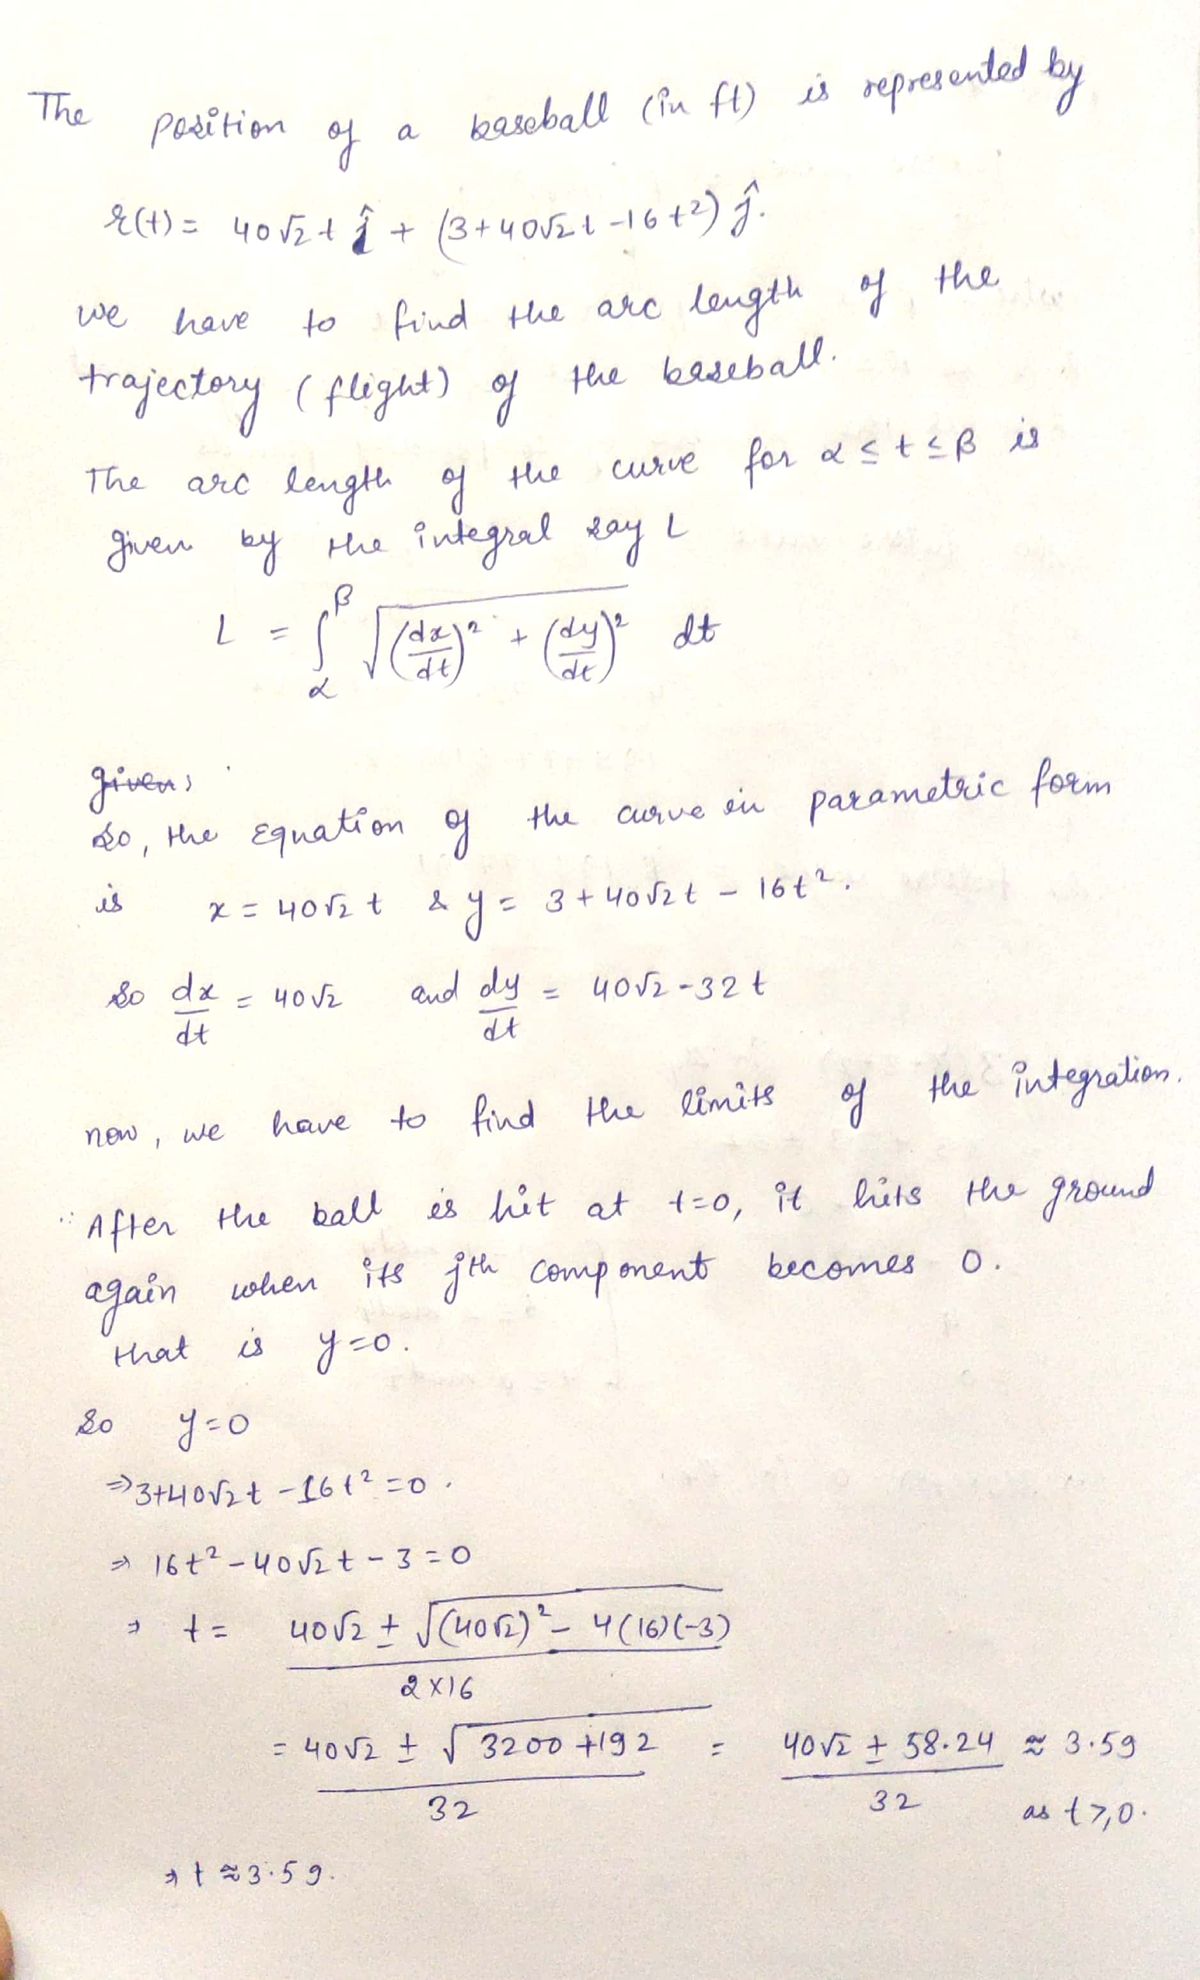 The position of a baseball (in ft) is represented by
r(t) = 40√2 t î + (3+40√2 t -16 t²) ĵ.
we have to find the arc length of the
trajectory (flight) of the baseball.
The arc length of the curve for α ≤ t ≤ β is
given by the integral say L
L = ∫_α^β √((dx/dt)² + (dy/dt)²) dt
given:
So, the equation of the curve in parametric form
is x = 40√2 t & y = 3 + 40√2 t - 16t².
So dx/dt = 40√2 and dy/dt = 40√2 - 32 t
now, we have to find the limits of the integration.
∵ After the ball is hit at t=0, it hits the ground
again when its jth component becomes 0.
that is y=0.
So y=0
⇒ 3+40√2 t - 16 t² = 0.
⇒ 16t² - 40√2 t - 3 = 0
⇒ t = (40√2 ± √((40√2)² - 4(16)(-3))) / (2×16)
= (40√2 ± √(3200 + 192)) / 32 = (40√2 ± 58.24) / 32 ≈ 3.59
as t ≥ 0.
⇒ t ≈ 3.59.